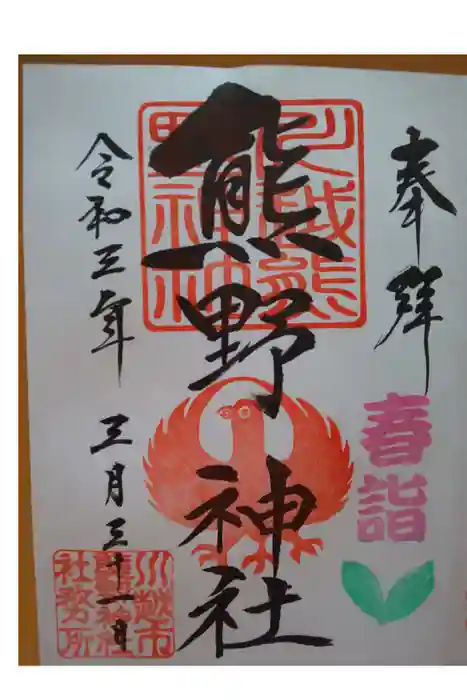 奉拝
春詣
川越熊野神社
熊野神社
令和三年 三月三十一日
川越市
熊野神社
社務所